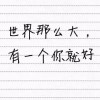 世界那么大，
有一个你就好